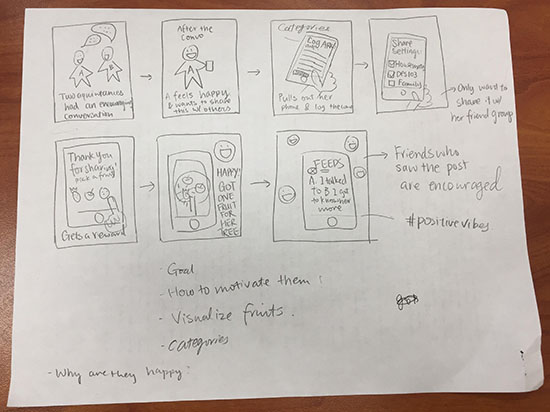 A
B
Two acquintances
had an encouraging
conversation
After the
Convo
A
A feels happy
& wants to share
this w/ others
Categories
Log App
Pulls out her
phone & log the convo
Share
Settings:
Family
Only want to
share it w/
her friend group
Thank you
for sharing!
pick a fruit!
Gets a reward
HAPPY!
GOT
ONE
FRUIT
FOR
HER
TREE
FEEDS
A. I talked
to B. I got
to know her
more
Friends who
saw the post
are encouraged
#positivevibes
- Goal
- How to motivate them?
- Visualize fruits.
- Categories
- Why are they happy?